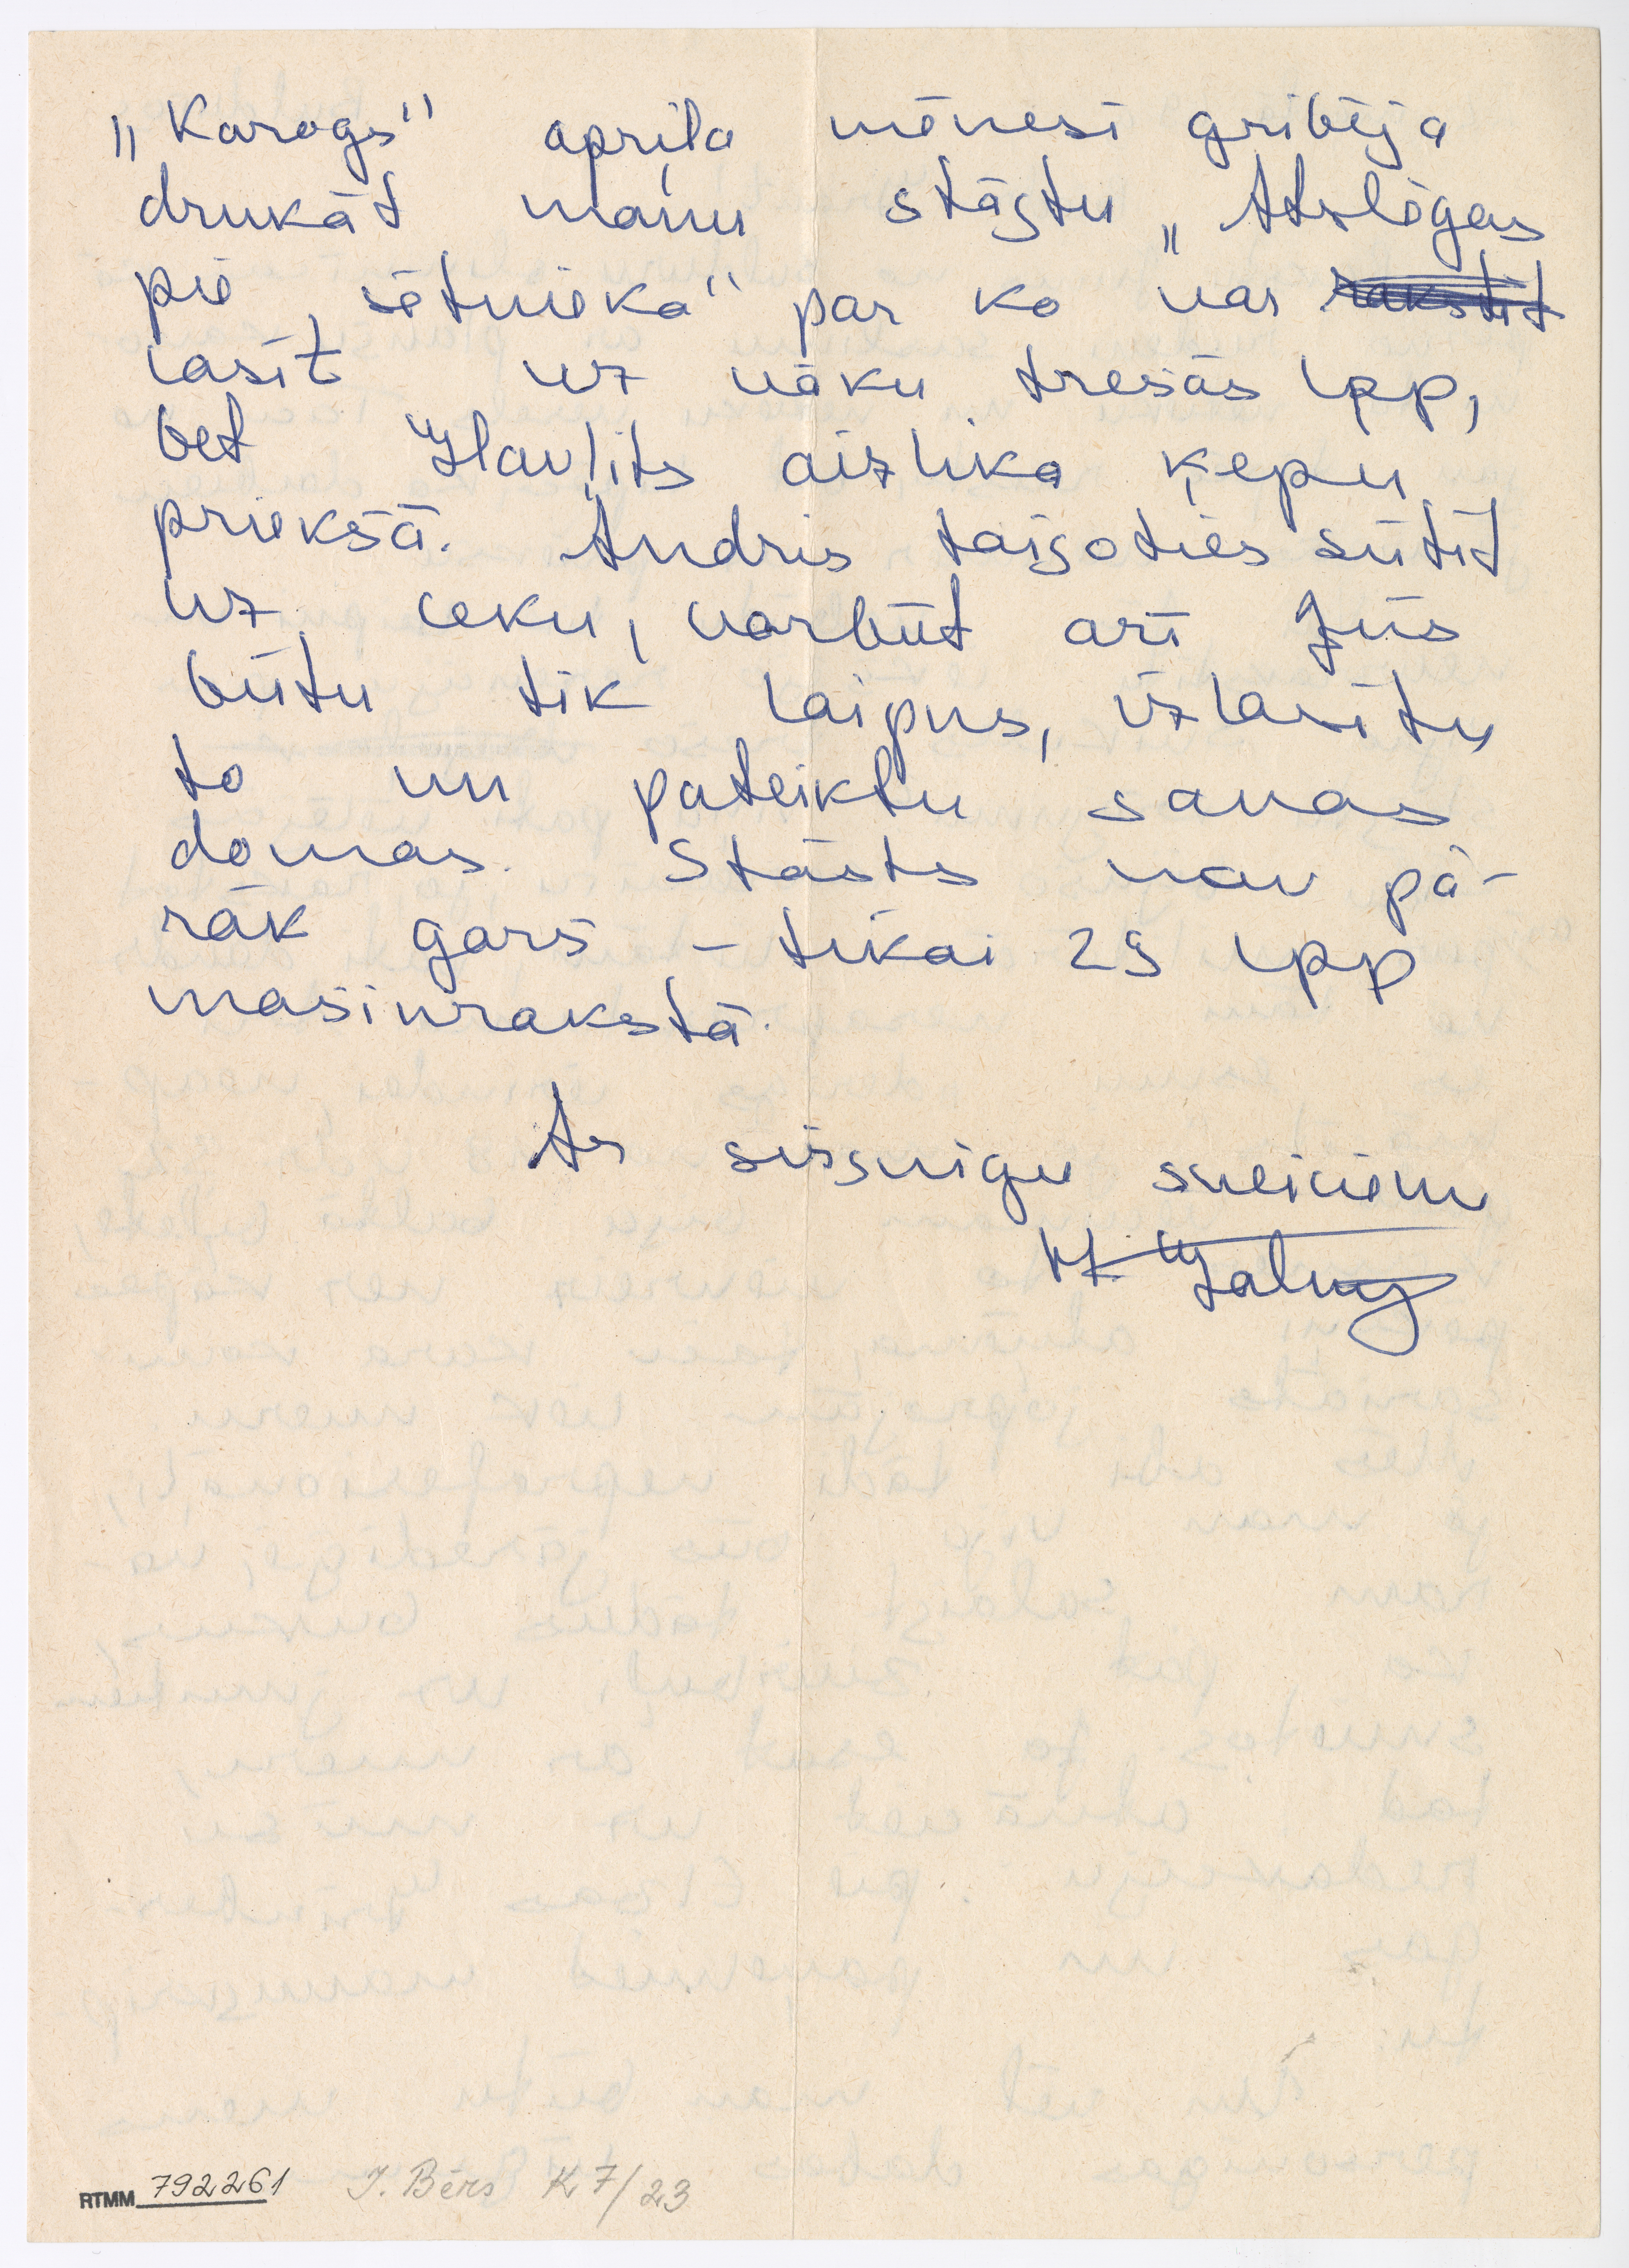 „Karogs" aprīļa mēnesī gribēja
drukāt manu stāstu „Atslēgas
pie sētnieka" par ko var rakstīt
lasīt uz vāku trešās lpp,
bet Glavļits aizlika ķepu
priekšā. Andris taisoties sūtīt
uz ceku, varbūt arī Jūs
būtu tik laipns, izlasītu
to un pateiktu savas
domas. Stāsts nav pā-
rāk garš – tikai 29 lpp
mašīnrakstā.
Ar sirsnīgu sveicienu
RTMM 792261 J. Bērs K 7/23